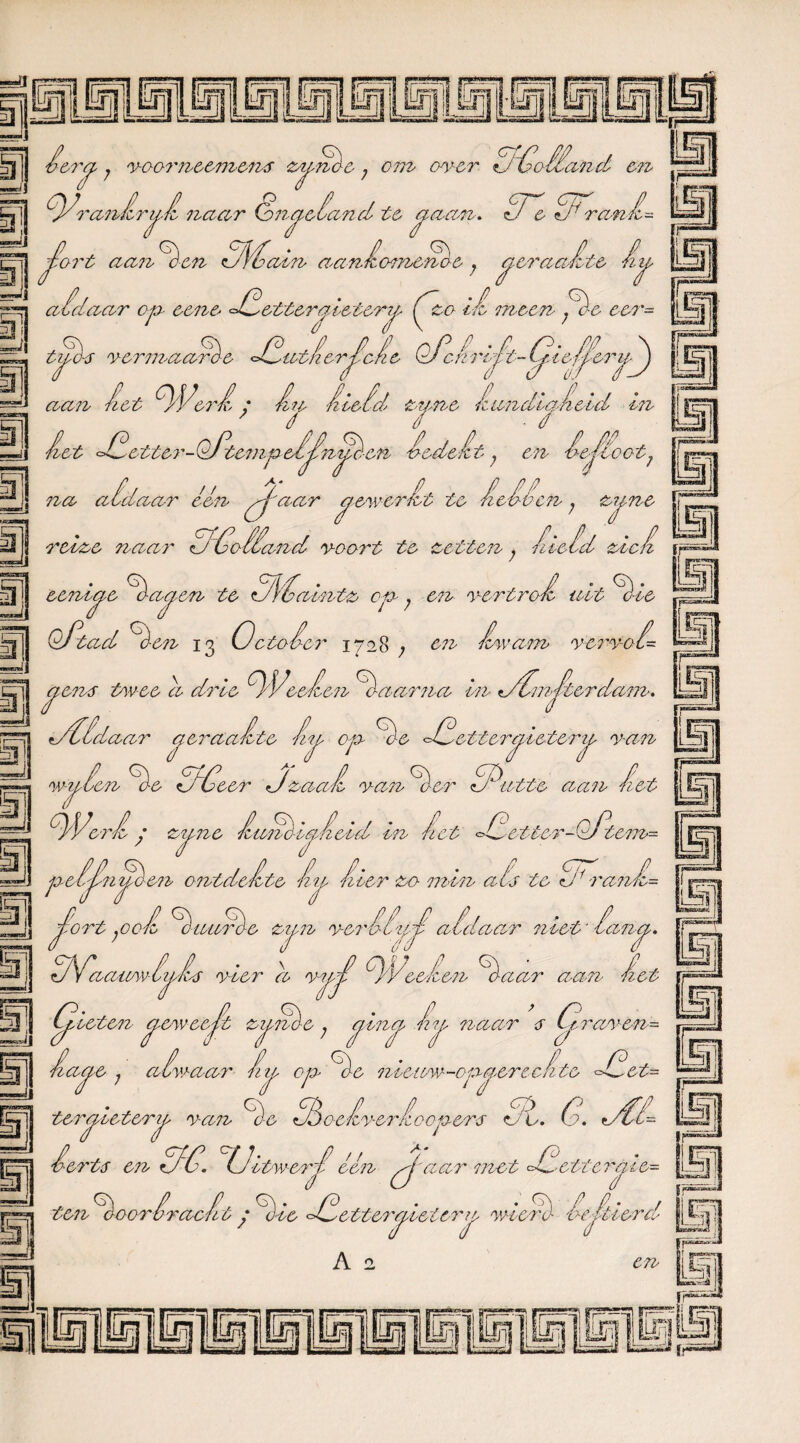 berg, voorneemens zynde, om over Holland en
Vrankryk naar Engeland te gaan. Te Frank=
fort aan den Main aankomende, geraakte hy
aldaar op eene Lettergietery (zo ik meen, de eer=
tyds vermaarde Luthersche Schrift-Giessery)
aan het Werk; hy hield zyne kundigheid in
het Letter-Stempelsnyden bedekt, en besloot,
na aldaar één Jaar gewerkt te hebben, zyne
reize naar Holland voort te zetten, hield zich
eenige dagen te Maintz op, en vertrok uit die
Stad den 13 October 1728, en kwam vervol=
gens twee a drie Weeken daarna in Amsterdam.
Aldaar geraakte hy op de Lettergietery van
wylen de Heer Izaak van der Putte aan het
Werk; zyne kundigheid in het Letter-Stem=
pelsnyden ontdekte hy hier zo min als te Frank=
fort, ook duurde zyn verblyf aldaar niet lang.
Naauwlyks vier a vyf Weeken daar aan het
Gieten geweest zynde, ging hy naar 's Graven=
hage, alwaar hy op de nieuw-opgerechte Let=
tergietery van de Boekverkoopers R. C. Al=
berts en H. Uitwerf één Jaar met Lettergie=
ten doorbracht; die Lettergietery wierd bestierd
A 2 en